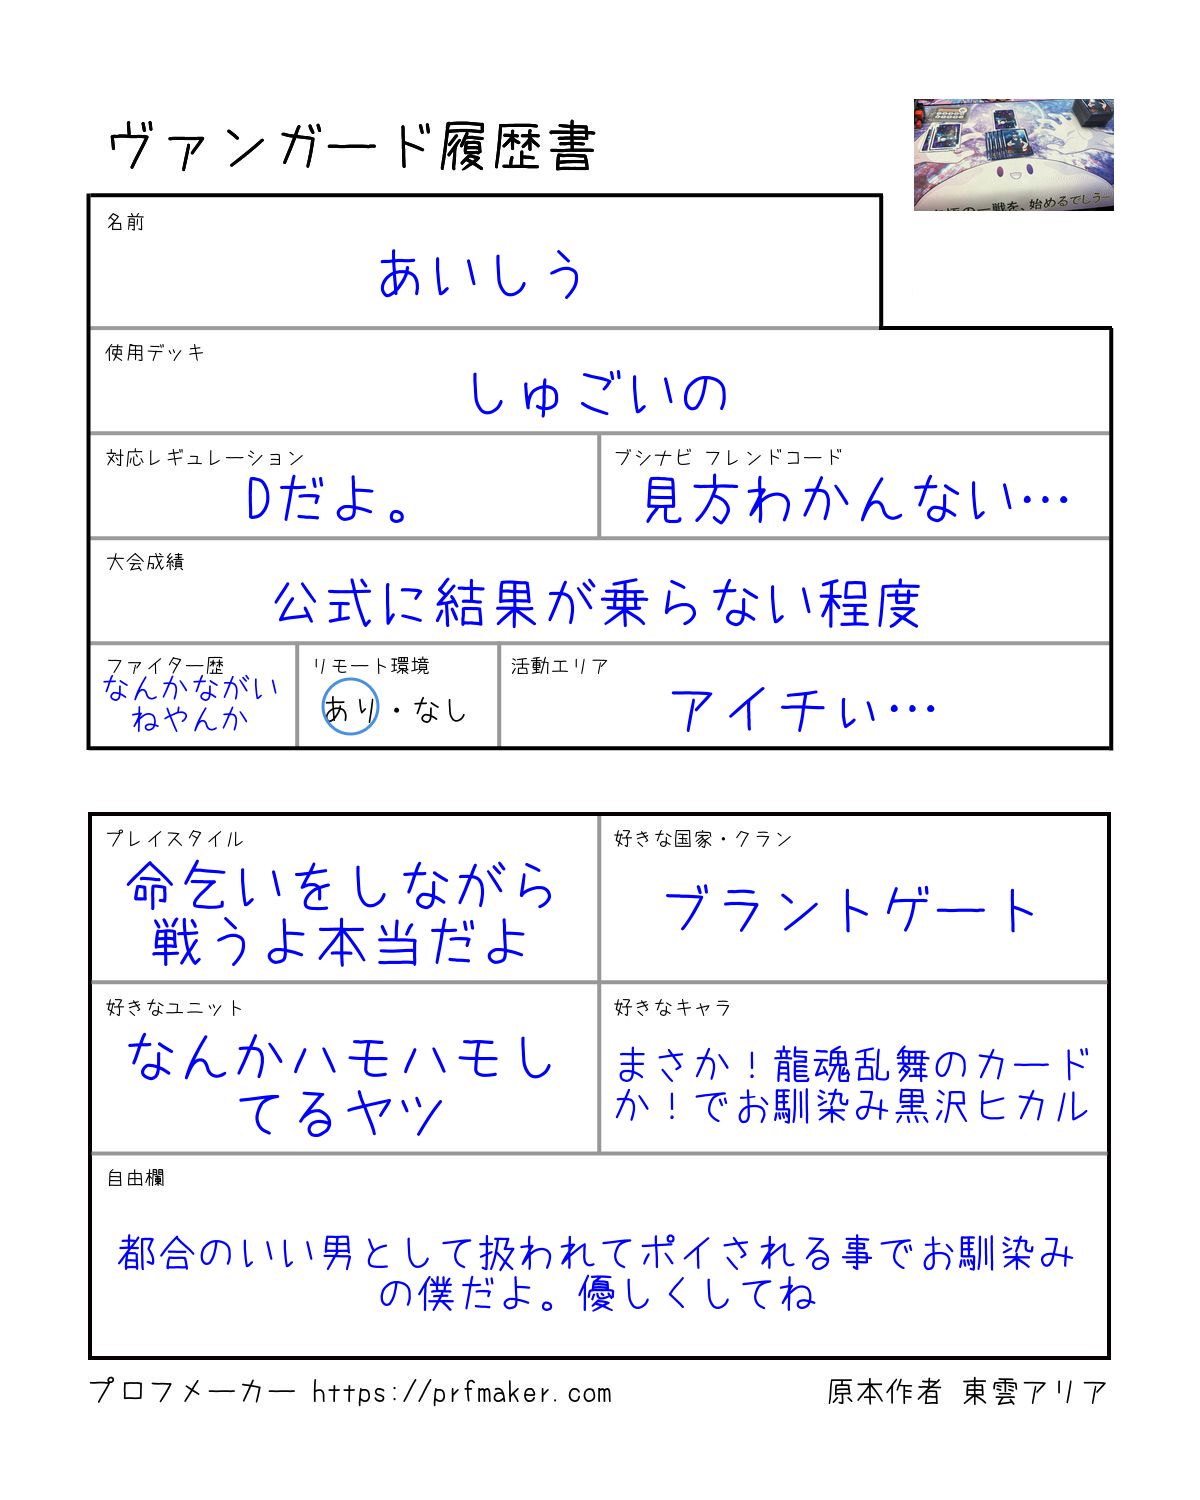 ヴァンガード履歴書
の一戦を、始めるでしう
名前
あいしう
使用デッキ
しゅごいの
対応レギュレーション
Dだよ。
ブシナビ フレンドコード
見方わかんない…
大会成績
公式に結果が乗らない程度
ファイター歴
なんかながい
ねやんか
リモート環境
あり・なし
活動エリア
アイチぃ…
プレイスタイル
命乞いをしながら
戦うよ本当だよ
好きな国家・クラン
ブラントゲート
好きなユニット
なんかハモハモし
てるヤツ
好きなキャラ
まさか！龍魂乱舞のカード
か！でお馴染み黒沢ヒカル
自由欄
都合のいい男として扱われてポイされる事でお馴染み
の僕だよ。優しくしてね
プロフメーカー https://prfmaker.com
原本作者 東雲アリア